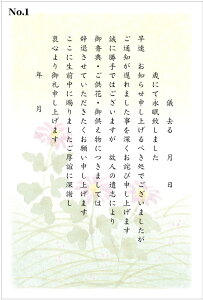 No.1
儀 去る 月 日
歳にて永眠致しました
早速 お知らせ申し上げるべき処でございましたが
ご通知が遅れました事を深くお詫び申し上げます
誠に勝手ではございますが 故人の遺志により
御香典・ご供花・御供え物につきましては
辞退させていただきたくお願い申し上げます
ここに生前中に賜りましたご厚誼に深謝し
衷心より御礼申し上げます
年 月